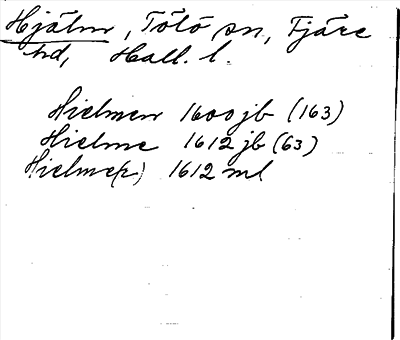 Hjälm, Tölö sn, Fjäre
hd, Hall. l.
Hielmen 1600 jb (163)
Hielme 1612 jb (63)
Hielme(r) 1612 ml